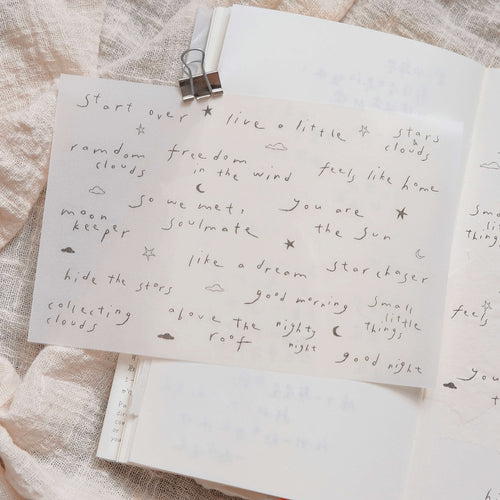 start over
live a little
stars
&
clouds
ramdom
clouds
freedom
in the wind
feels like home
moon
keeper
so we met,
soulmate
you are
the sun
like a dream
starchaser
hide the stars
good morning
small
little
things
collecting
clouds
above the
roof
nighty
night
good night
small
little
things
feels
you